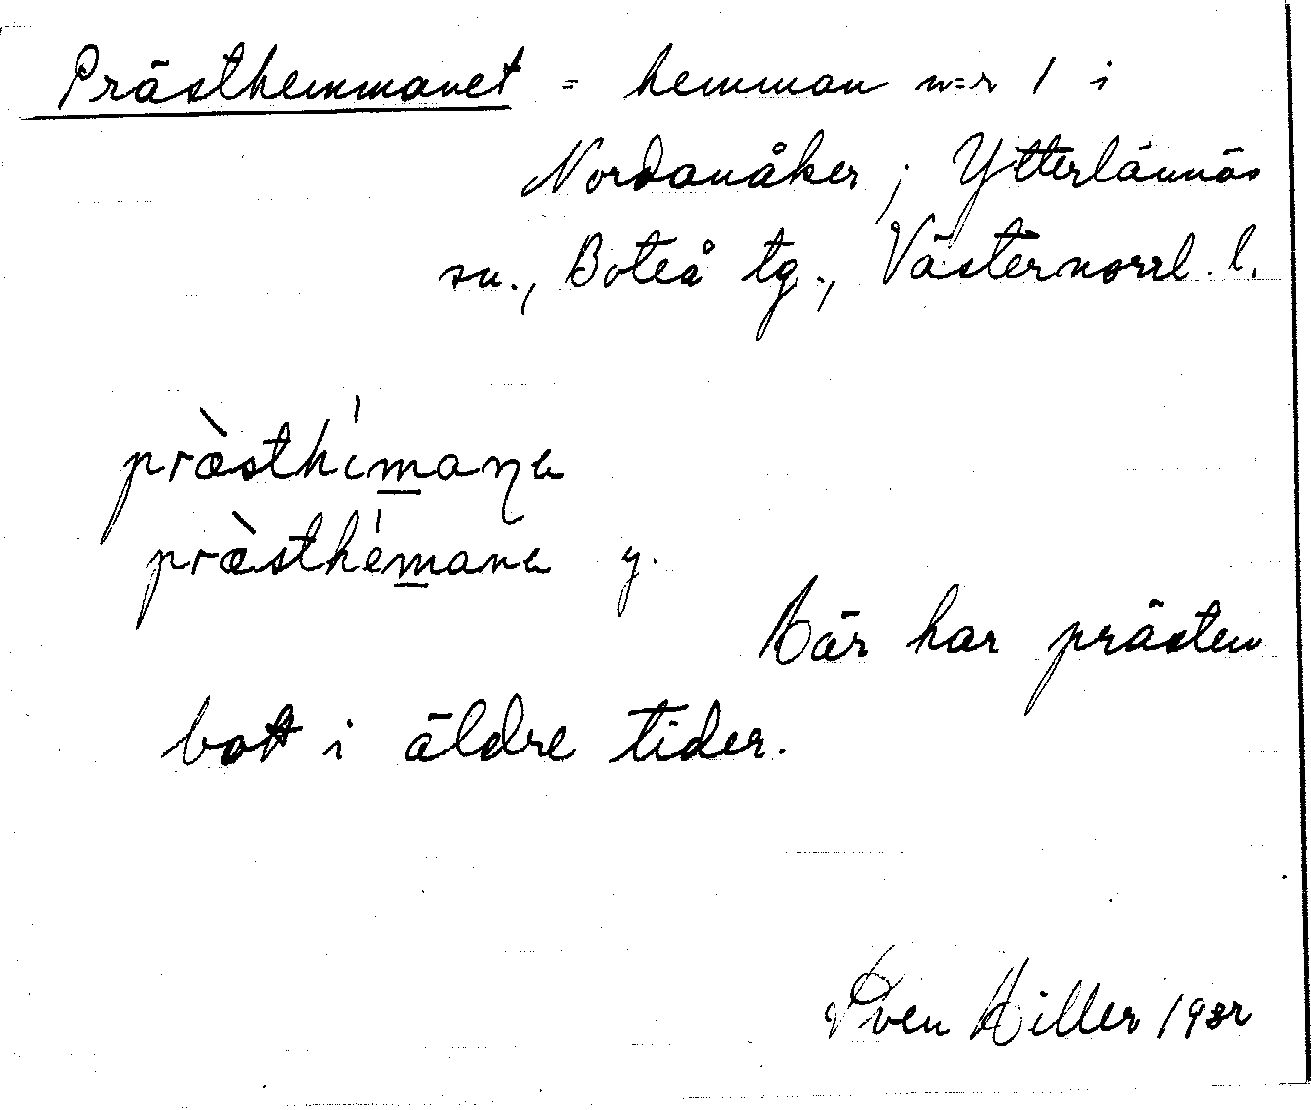 Prästhemmanet = hemman n=r 1 i
Nordanåker, Ytterlännäs
sn., Boteå tg., Västernorrl. l.
præ̀sthémaṇa
præ̀sthémana y.
Här har prästen
bott i äldre tider.
Sven Hiller 1932